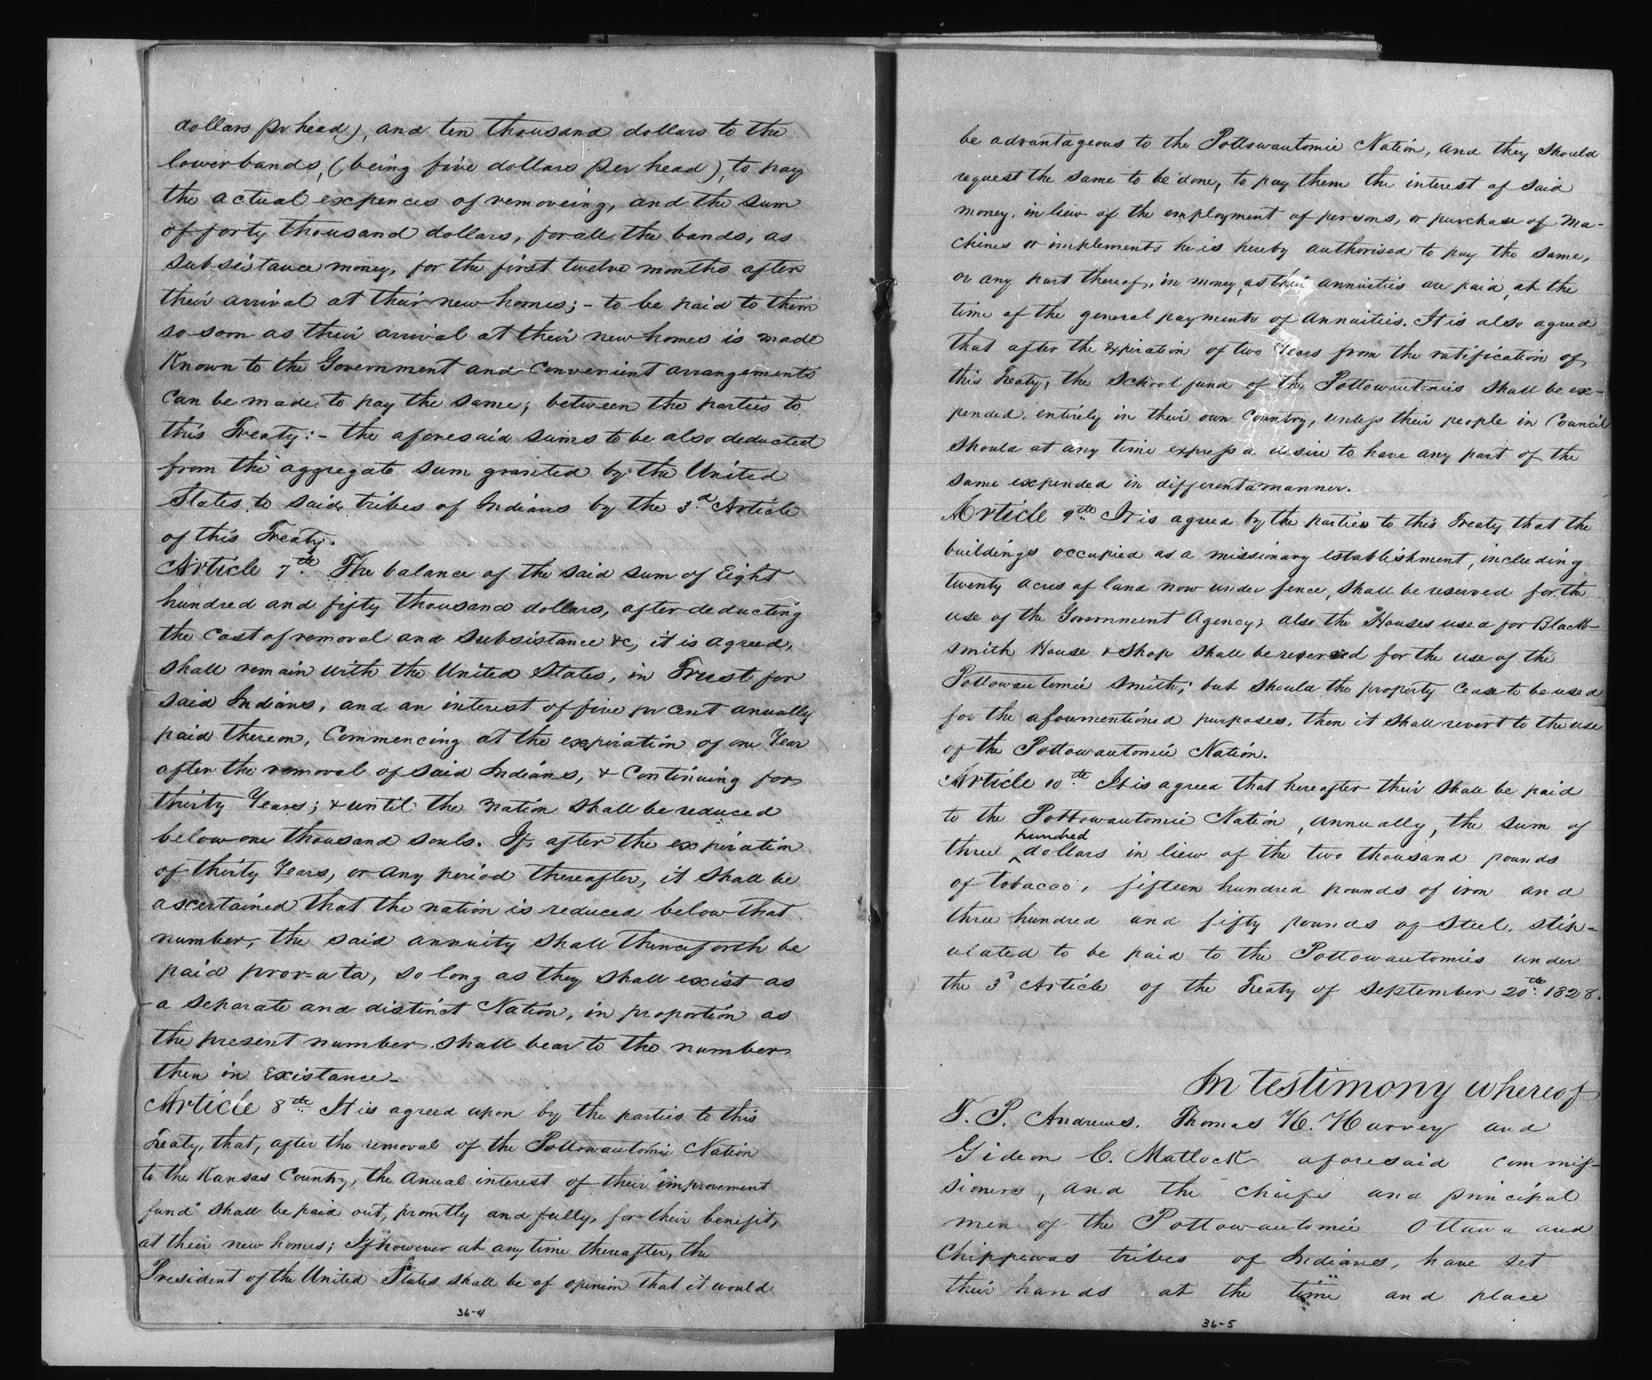 dollars pr head), and ten thousand dollars to the
lower bands, (being five dollars per head), to pay
the actual expences of removeing, and the sum
of forty thousand dollars, for all the bands, as
subsistance money, for the first twelve months after
their arrival at their new homes; - to be paid to them
so soon as their arrival at their new homes is made
Known to the Government and convenient arrangements
can be made to pay the same; between the parties to
this Treaty: - the aforesaid sums to be also deducted
from the aggregate sum granted by the United
States to said tribes of Indians by the 3d Article
of this Treaty.
Article 7th. The balance of the said sum of Eight
hundred and fifty thousand dollars, after deducting
the cost of removal and subsistance &c, it is agreed,
shall remain with the United States, in Trust for
said Indians, and an interest of five pr cent anually
paid thereon, Commencing at the expiration of one Year
after the removal of said Indians, & Continuing for
thirty Years; & until the nation shall be reduced
below one thousand souls. If, after the expiration
of thirty Years, or any period thereafter, it shall be
ascertained that the nation is reduced below that
number, the said annuity shall thenceforth be
paid pror-ata, so long as they shall exist as
a separate and distinct Nation, in proportion as
the present number shall bear to the number
then in existance -
Article 8th. It is agreed upon by the parties to this
Treaty, that, after the removal of the Pottowautomie Nation
to the Kansas Country, the Anual interest of their "improvement
fund" shall be paid out, promtly and fully, for their benefit,
at their new homes; If however at any time thereafter, the
President of the United States shall be of opinion that it would
36-4
be advantageous to the Pottowautomie Nation, and they should
request the same to be done, to pay them the interest of said
money, in lieu of the employment of persons, or purchase of ma-
chines or implements he is hereby authorised to pay the same,
or any part thereof, in money, as their annuities are paid, at the
time of the general payments of Annuities. It is also agreed
that after the expiration of two Years from the ratification of
this Treaty, the School fund of the Pottowautomies shall be ex-
pended entirely in their own Country, unless their people in Council
should at any time express a desire to have any part of the
same expended in different a manner.
Article 9th It is agreed by the parties to this Treaty that the
buildings occupied as a missionary establishment, including
twenty acres of land now under fence, shall be reserved for the
use of the Government Agency; also the Houses used for Black-
smith House & Shop shall be reserved for the use of the
Pottowautomie Smith; but should the property cease to be used
for the aforementioned purposes, then it shall revert to the use
of the Pottowautomie Nation.
Article 10th It is agreed that hereafter their shall be paid
to the Pottowautomie Nation, annually, the sum of
three ^hundred dollars in lieu of the two thousand pounds
of tobacco, fifteen hundred pounds of iron and
three hundred and fifty pounds of Steel, stip-
ulated to be paid to the Pottowautomies under
the 3d Article of the Treaty of September 20th. 1828.
In testimony whereof
T. P. Andrews, Thomas H. Harvey and
Gideon C. Matlock aforesaid commis-
sioners, and the chiefs and principal
men of the Pottowautomie Ottawa and
Chippewas tribes of Indians, have set
their hands at the time and place
36-5